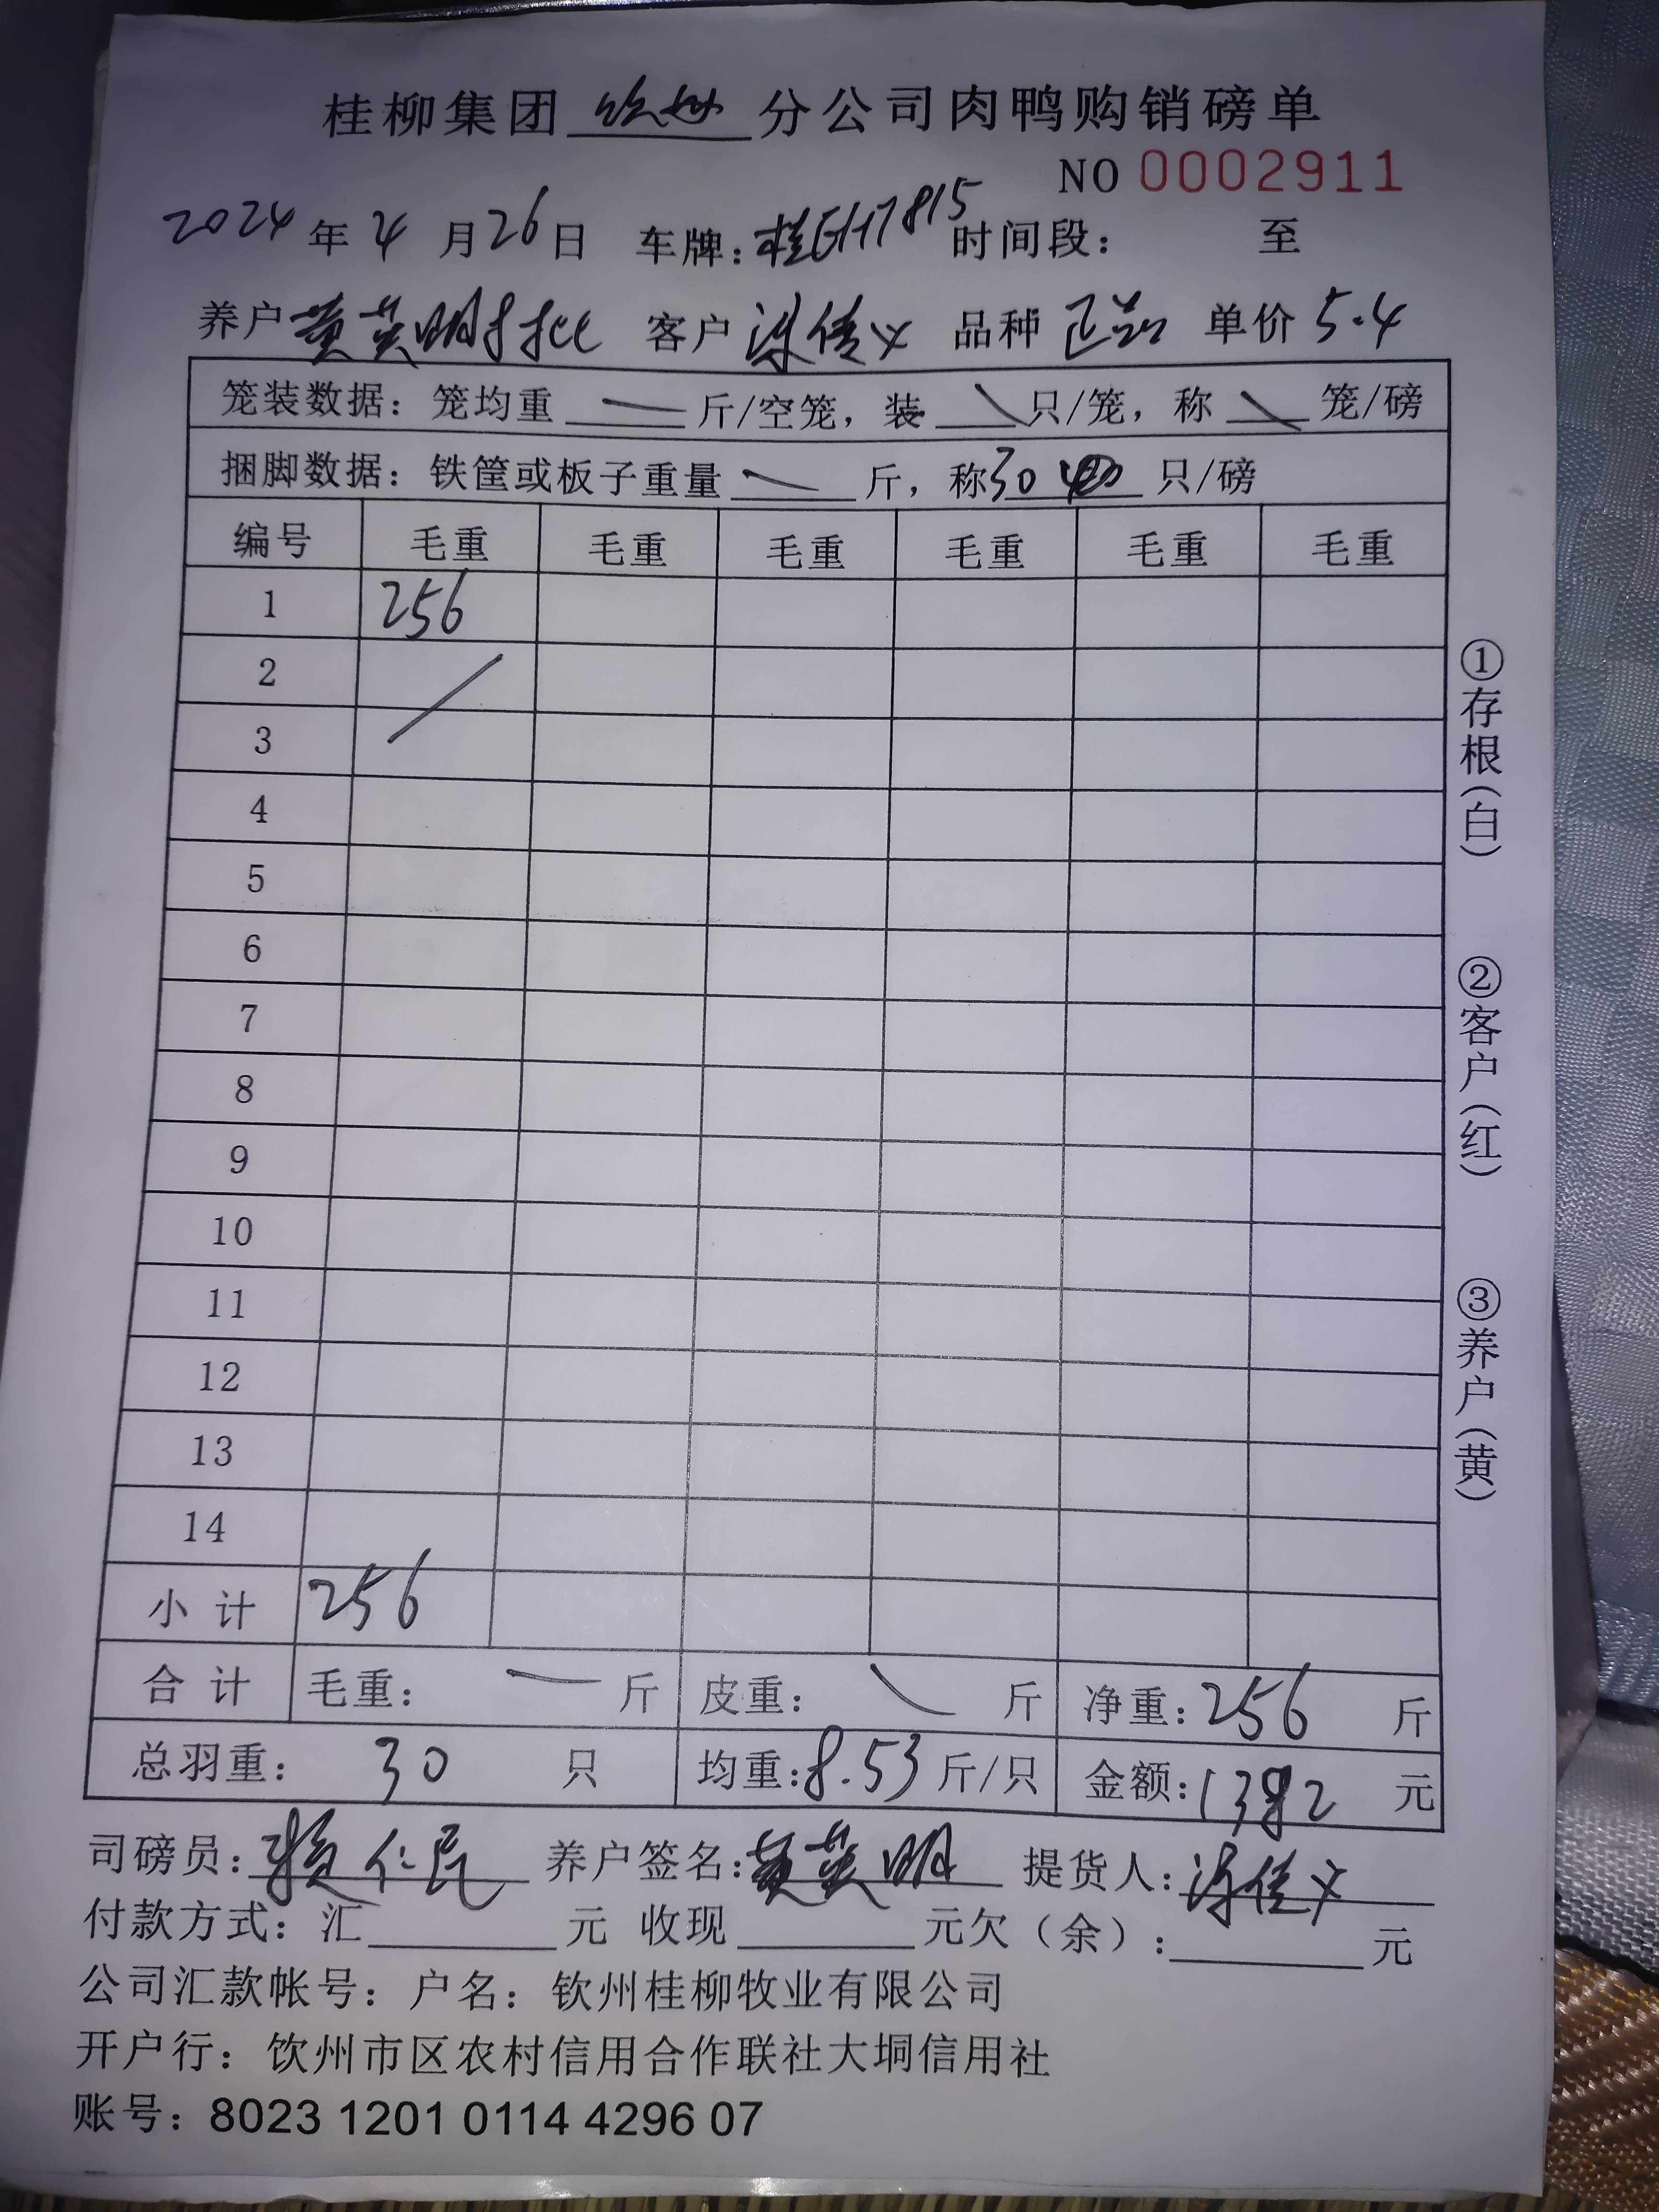 桂柳集团 钦州 分公司肉鸭购销磅单
NO 0002911
2024 年 4 月 26 日 车牌：桂EH7815 时间段： 至
养户 黄英明 批 客户 陈信义 品种 正品 单价 5.4
笼装数据：笼均重 — 斤/空笼，装 只/笼，称 笼/磅
捆脚数据：铁筐或板子重量 — 斤，称 30 只/磅
编号 毛重 毛重 毛重 毛重 毛重 毛重
1 256
2
3
4
5
6
7
8
9
10
11
12
13
14
小计 256
合计 毛重： — 斤 皮重： 斤 净重：256 斤
总羽重： 30 只 均重：8.53 斤/只 金额：1382 元
司磅员：赖仁民 养户签名：黄英明 提货人：陈信义
付款方式：汇 元 收现 元欠（余）： 元
公司汇款帐号：户名：钦州桂柳牧业有限公司
开户行：饮州市区农村信用合作联社大垌信用社
账号：8023 1201 0114 4296 07
①存根（白）
②客户（红）
③养户（黄）